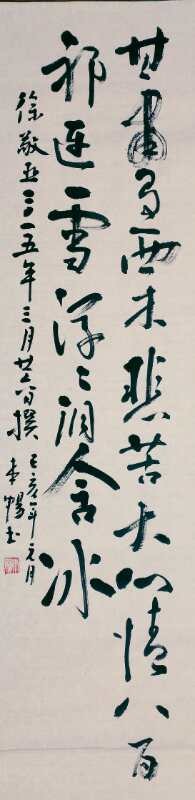 甘肃多西末悲苦天心情八百
祁连雪浮泪含冰
徐敬亚二〇一五年三月廿六日撰
己亥年元月
李犁书